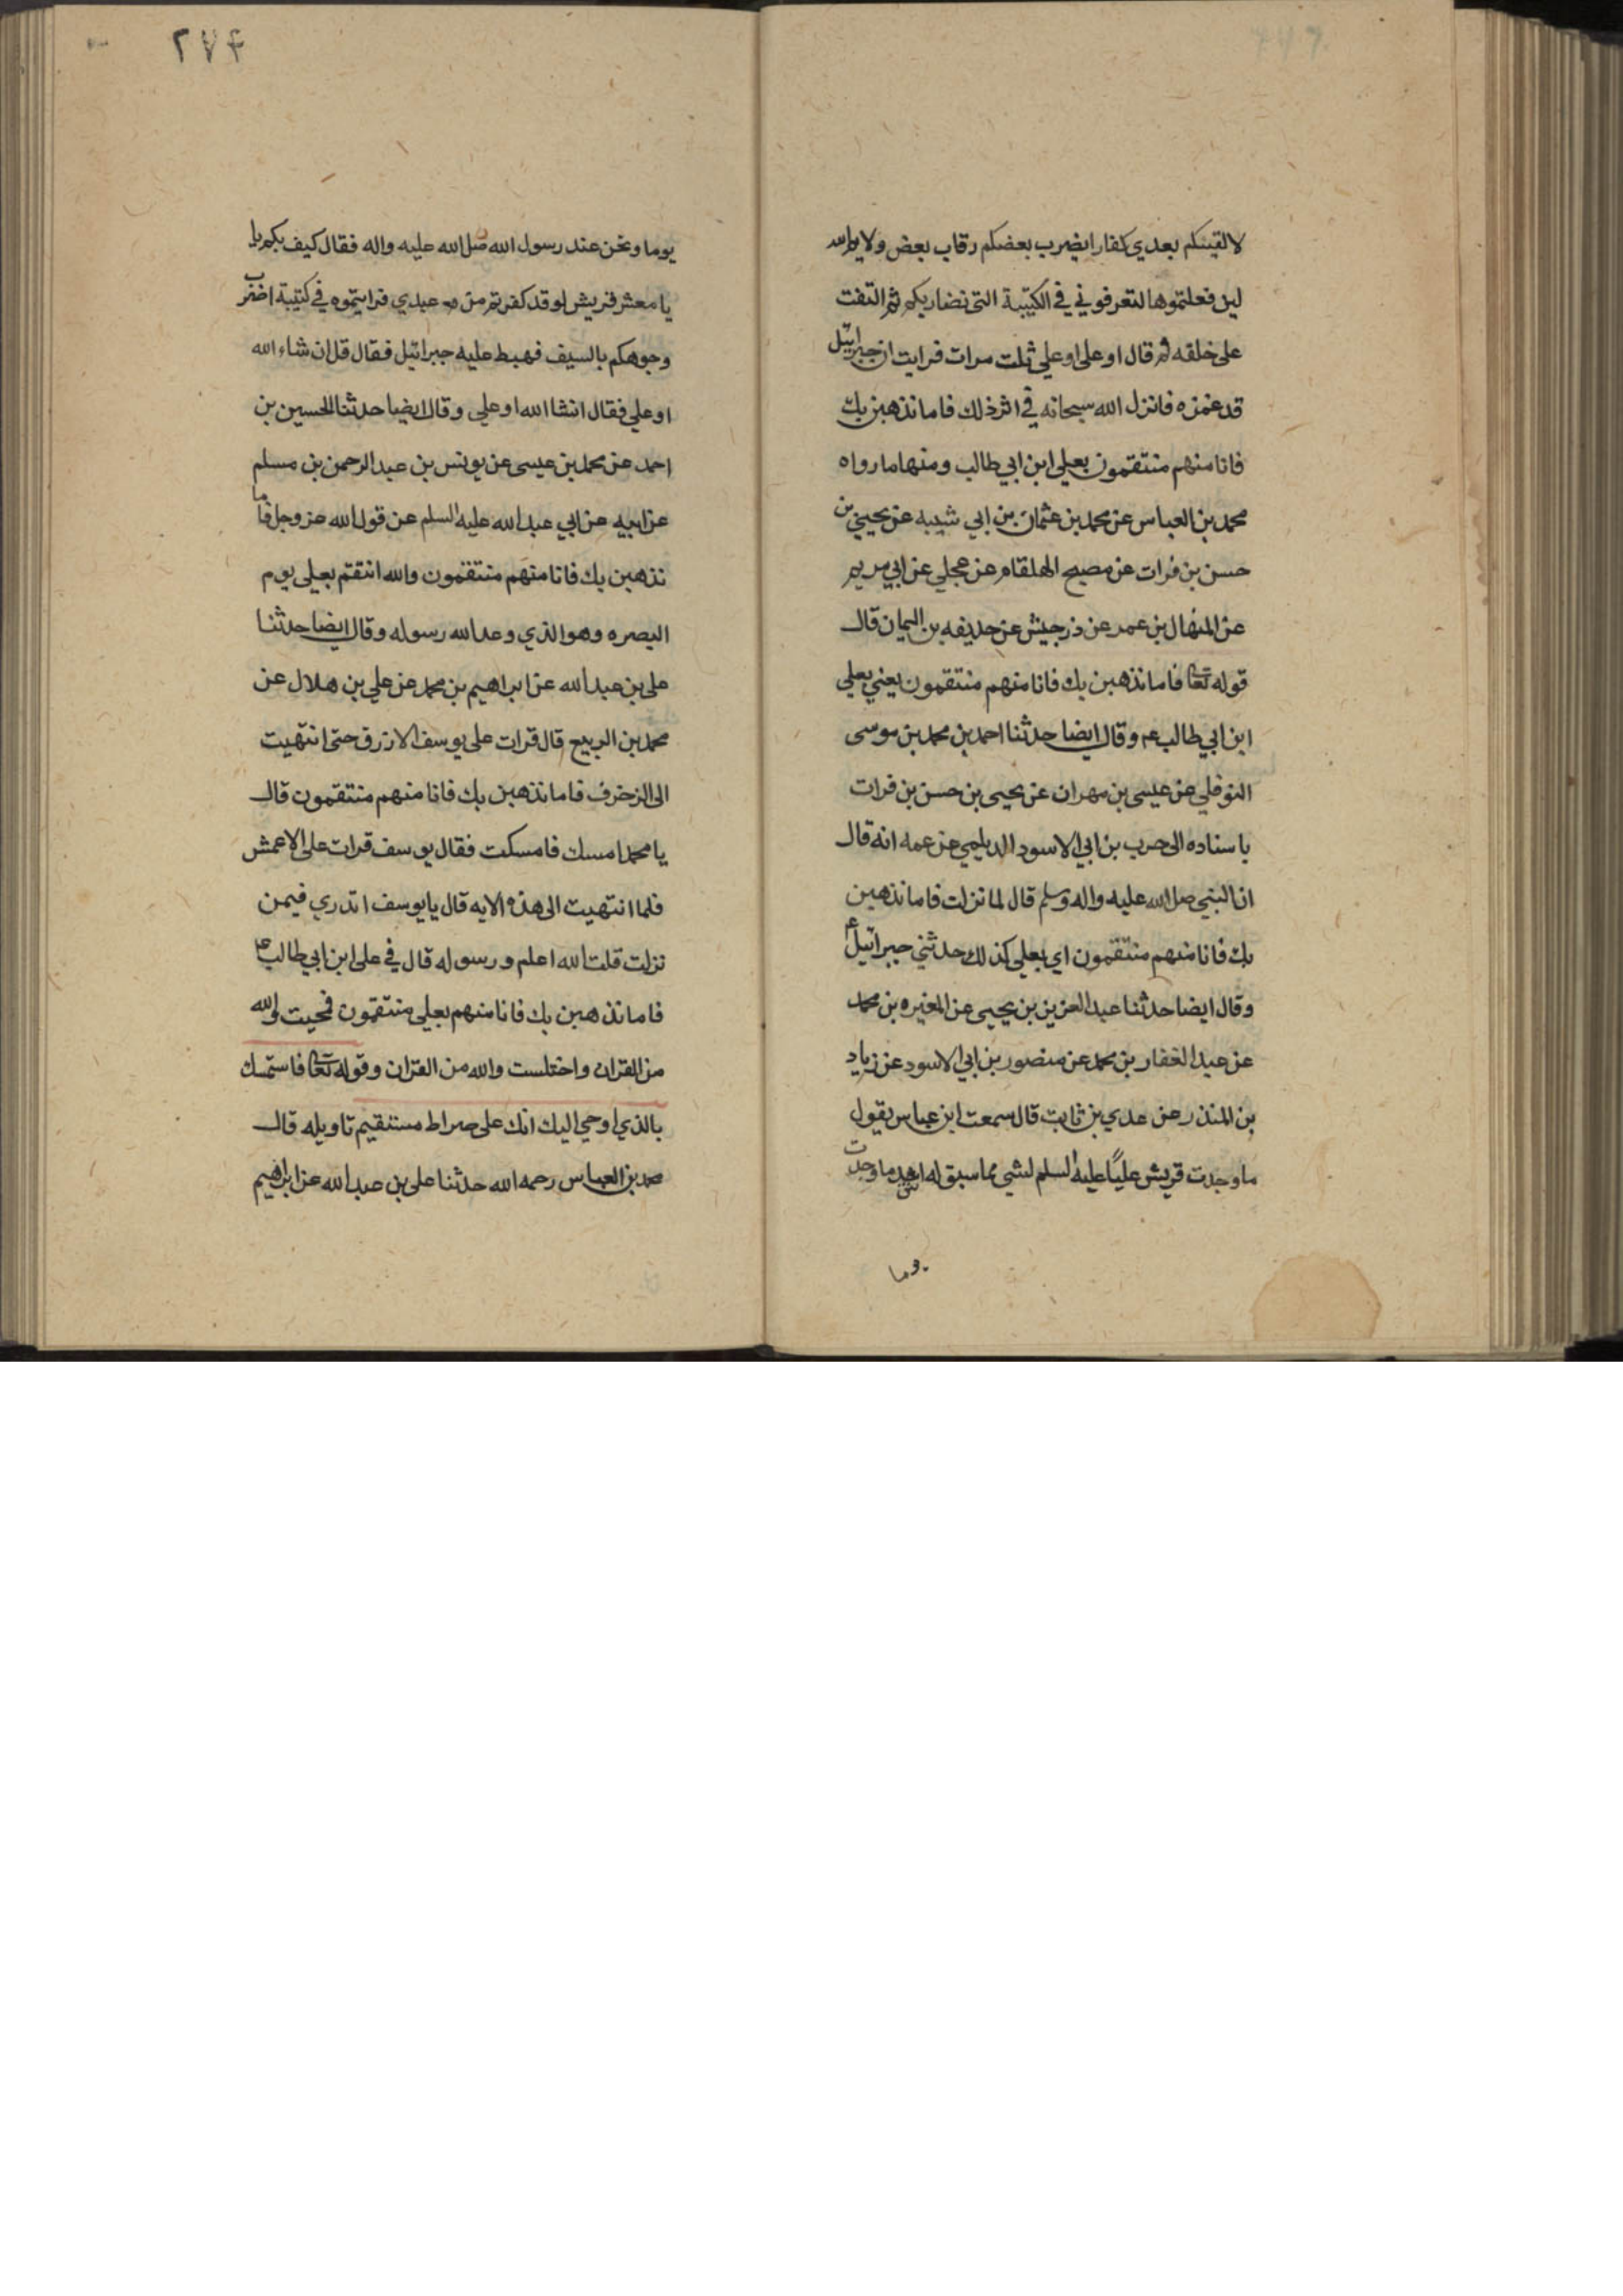 لالقينكم بعدي كفارا يضرب بعضكم رقاب بعض ولا يم الله
لين فعلتموها لتعرفوني في الكتيبة التى تضاربكم ثم التفت
على خلقه ثم قال او على او علي ثلت مرات فرايت ان جبرائيل
قد غمزه فانزل الله سبحانه في اثر ذلك فاما نذهبن بك
فانا منهم منتقمون بعلى ابن ابي طالب ومنها ما رواه
محمد بن العباس عن محمد بن عثمان بن ابي شيبه عن يحيى بن
حسن بن فرات عن مصبح الهلقام عن عجلي عن ابي مريم
عن المنهال بن عمر عن ذر جيش عن حذيفه بن اليمان قال
قوله تعا فاما نذهبن بك فانا منهم منتقمون يعني بعلي
ابن ابي طالب عم وقال ايضا حدثنا احمد بن محمد بن موسى
النوفلي عن عيسى بن مهران عن يحيى بن حسن بن فرات
باسناده الى حرب بن ابي الاسود الديلمي عن عمه انه قال
ان النبي صل الله عليه واله وسلم قال لما نزلت فاما نذهبن
بك فانا منهم منتقمون اي بعلى كذلك حدثني جبرائيل ع
وقال ايضا حدثنا عبد العزيز بن يحيى عن المغيره بن محمد
عن عبد الغفار بن محمد عن منصور بن ابي الاسود عن زياد
بن المنذر عن عدي بن ثابت قال سمعت ابن عباس يقول
ما وجدت قريش عليًا عليه السلم لشي مما سبق له اشد ما وجدت
يوما
٢٧۴
يوما ونحن عند رسول الله صل الله عليه واله فقال كيف بكم يا
يا معشر قريش لو قد كفرتم من بعدي فرايتموه في كتيبة اضرب
وجوهكم بالسيف فهبط عليه جبرائيل فقال قل ان شاء الله
او علي فقال انشا الله او علي وقال ايضا حدثنا الحسين بن
احمد عن محمد بن عيسى عن يونس بن عبد الرحمن بن مسلم
عن ابيه عن ابي عبد الله عليه السلم عن قول الله عز وجل فاما
نذهبن بك فانا منهم منتقمون والله انتقم بعلى يوم
البصره وهو الذي وعد الله رسوله وقال ايضا حدثنا
على بن عبد الله عن ابراهيم بن محمد عن علي بن هلال عن
محمد بن الربيع قال قرات على يوسف الازرق حتى انتهيت
الى الزخرف فاما نذهبن بك فانا منهم منتقمون قال
يا محمد امسك فامسكت فقال يوسف قرات على الاعمش
فلما انتهيت الى هذه الايه قال يا يوسف اتدري فيمن
نزلت قلت الله اعلم ورسوله قال في على ابن ابي طالب ع
فاما نذهبن بك فانا منهم بعلى منتقمون فمحيت والله
من القران واختلست والله من القران وقوله تعا فاستمسك
بالذي اوحي اليك انك على صراط مستقيم تاويله قال
محمد بن العباس رحمه الله حدثنا على بن عبد الله عن ابراهيم